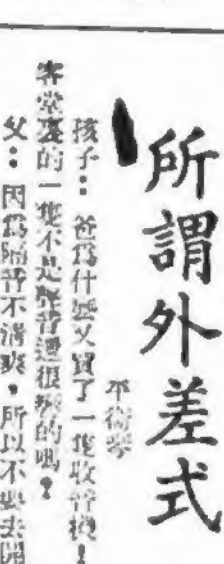 所謂外差式
平衡學
孩子：爸爲什麽又買了一隻收音機！
客堂裏的一隻不是聲音還很響的嗎？
父：因爲隔音不清爽，所以不要去開